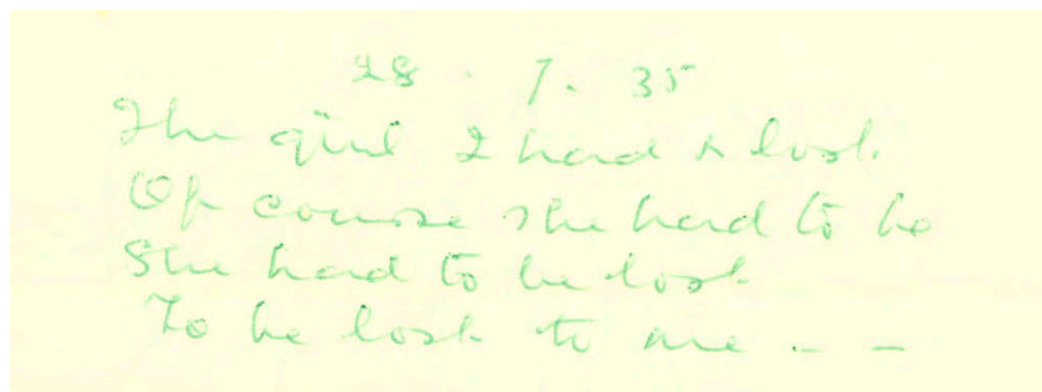 28 . 7. 35
The girl I had & lost.
Of course she had to be
She had to be lost
To be lost to me . . –